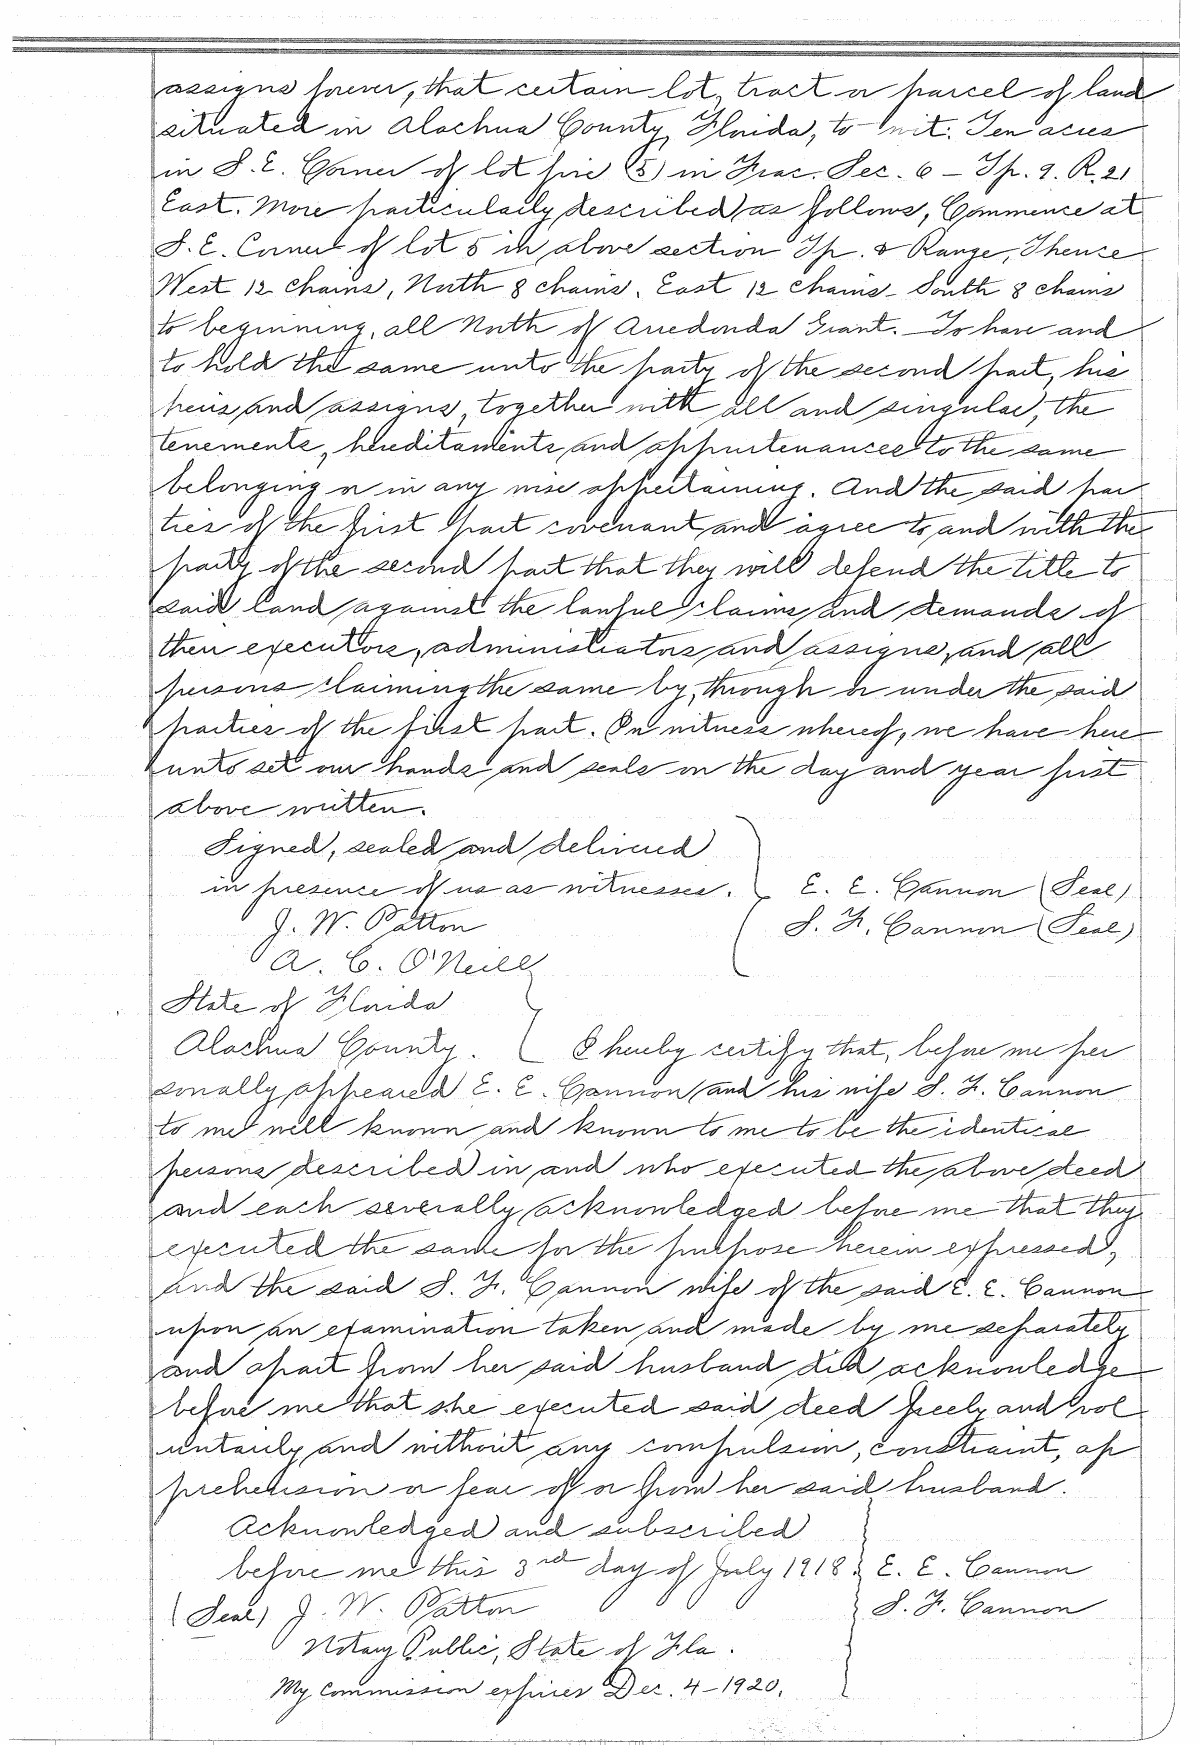 assigns forever, that certain lot, tract or parcel of land
situated in Alachua County, Florida, to-wit: Ten acres
in S.E. Corner of lot five (5) in Frac. Sec. 6 - Tp. 9. R. 21
East. More particularly described as follows, Commence at
S.E. Corner of lot 5 in above section Tp. & Range, Thence
West 12 chains, North 8 chains, East 12 chains - South 8 chains
to beginning, all North of Arredonda Grant. - To have and
to hold the same unto the party of the second part, his
heirs and assigns, together with all and singular, the
tenements, hereditaments and appurtenances to the same
belonging or in any wise appertaining. And the said par
ties of the first part covenant and agree to and with the
party of the second part that they will defend the title to
said land against the lawful claims and demands of
their executors, administrators and assigns, and all
persons claiming the same by, through or under the said
parties of the first part. In witness whereof, we have here
unto set our hands and seals on the day and year first
above written.
Signed, sealed and delivered
in presence of us as witnesses. E. E. Cannon (Seal)
J. W. Patton S. F. Cannon (Seal)
A. C. O'Neill
State of Florida
Alachua County. I hereby certify that, before me per
sonally appeared E. E. Cannon and his wife S. F. Cannon
to me well known and known to me to be the identical
persons described in and who executed the above deed
and each severally acknowledged before me that they
executed the same for the purpose herein expressed,
and the said S. F. Cannon wife of the said E. E. Cannon
upon an examination taken and made by me separately
and apart from her said husband did acknowledge
before me that she executed said deed freely and vol
untarily and without any compulsion, constraint, ap
prehension or fear of or from her said husband.
Acknowledged and subscribed
before me this 3rd day of July 1918. E. E. Cannon
(Seal) J. W. Patton S. F. Cannon
Notary Public, State of Fla.
My commission expires Dec. 4-1920.